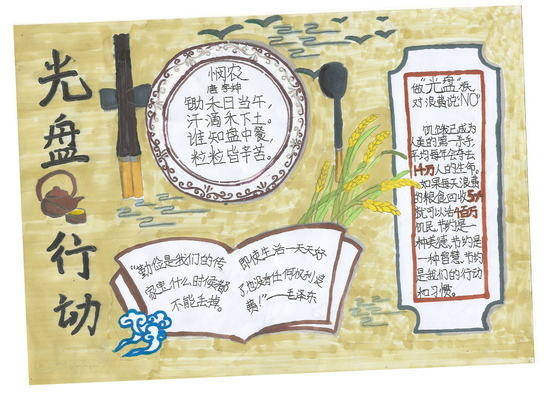 光盘行动
悯农
唐 李绅
锄禾日当午,
汗滴禾下土。
谁知盘中餐,
粒粒皆辛苦。
"勤俭是我们的传
家宝,什么时候都
不能丢掉。
即使生活一天天好
了也没有任何权利浪
费!"——毛泽东
做"光盘"族
对浪费说"NO"
饥饿已成为
人类的第一杀手,
平均每年会夺去
1千万人的生命。
如果每天浪费
的粮食回收5%
就可以活4百万
饥民。节约是一
种美德,节约是
一种智慧,节约
是我们的行动
和习惯。